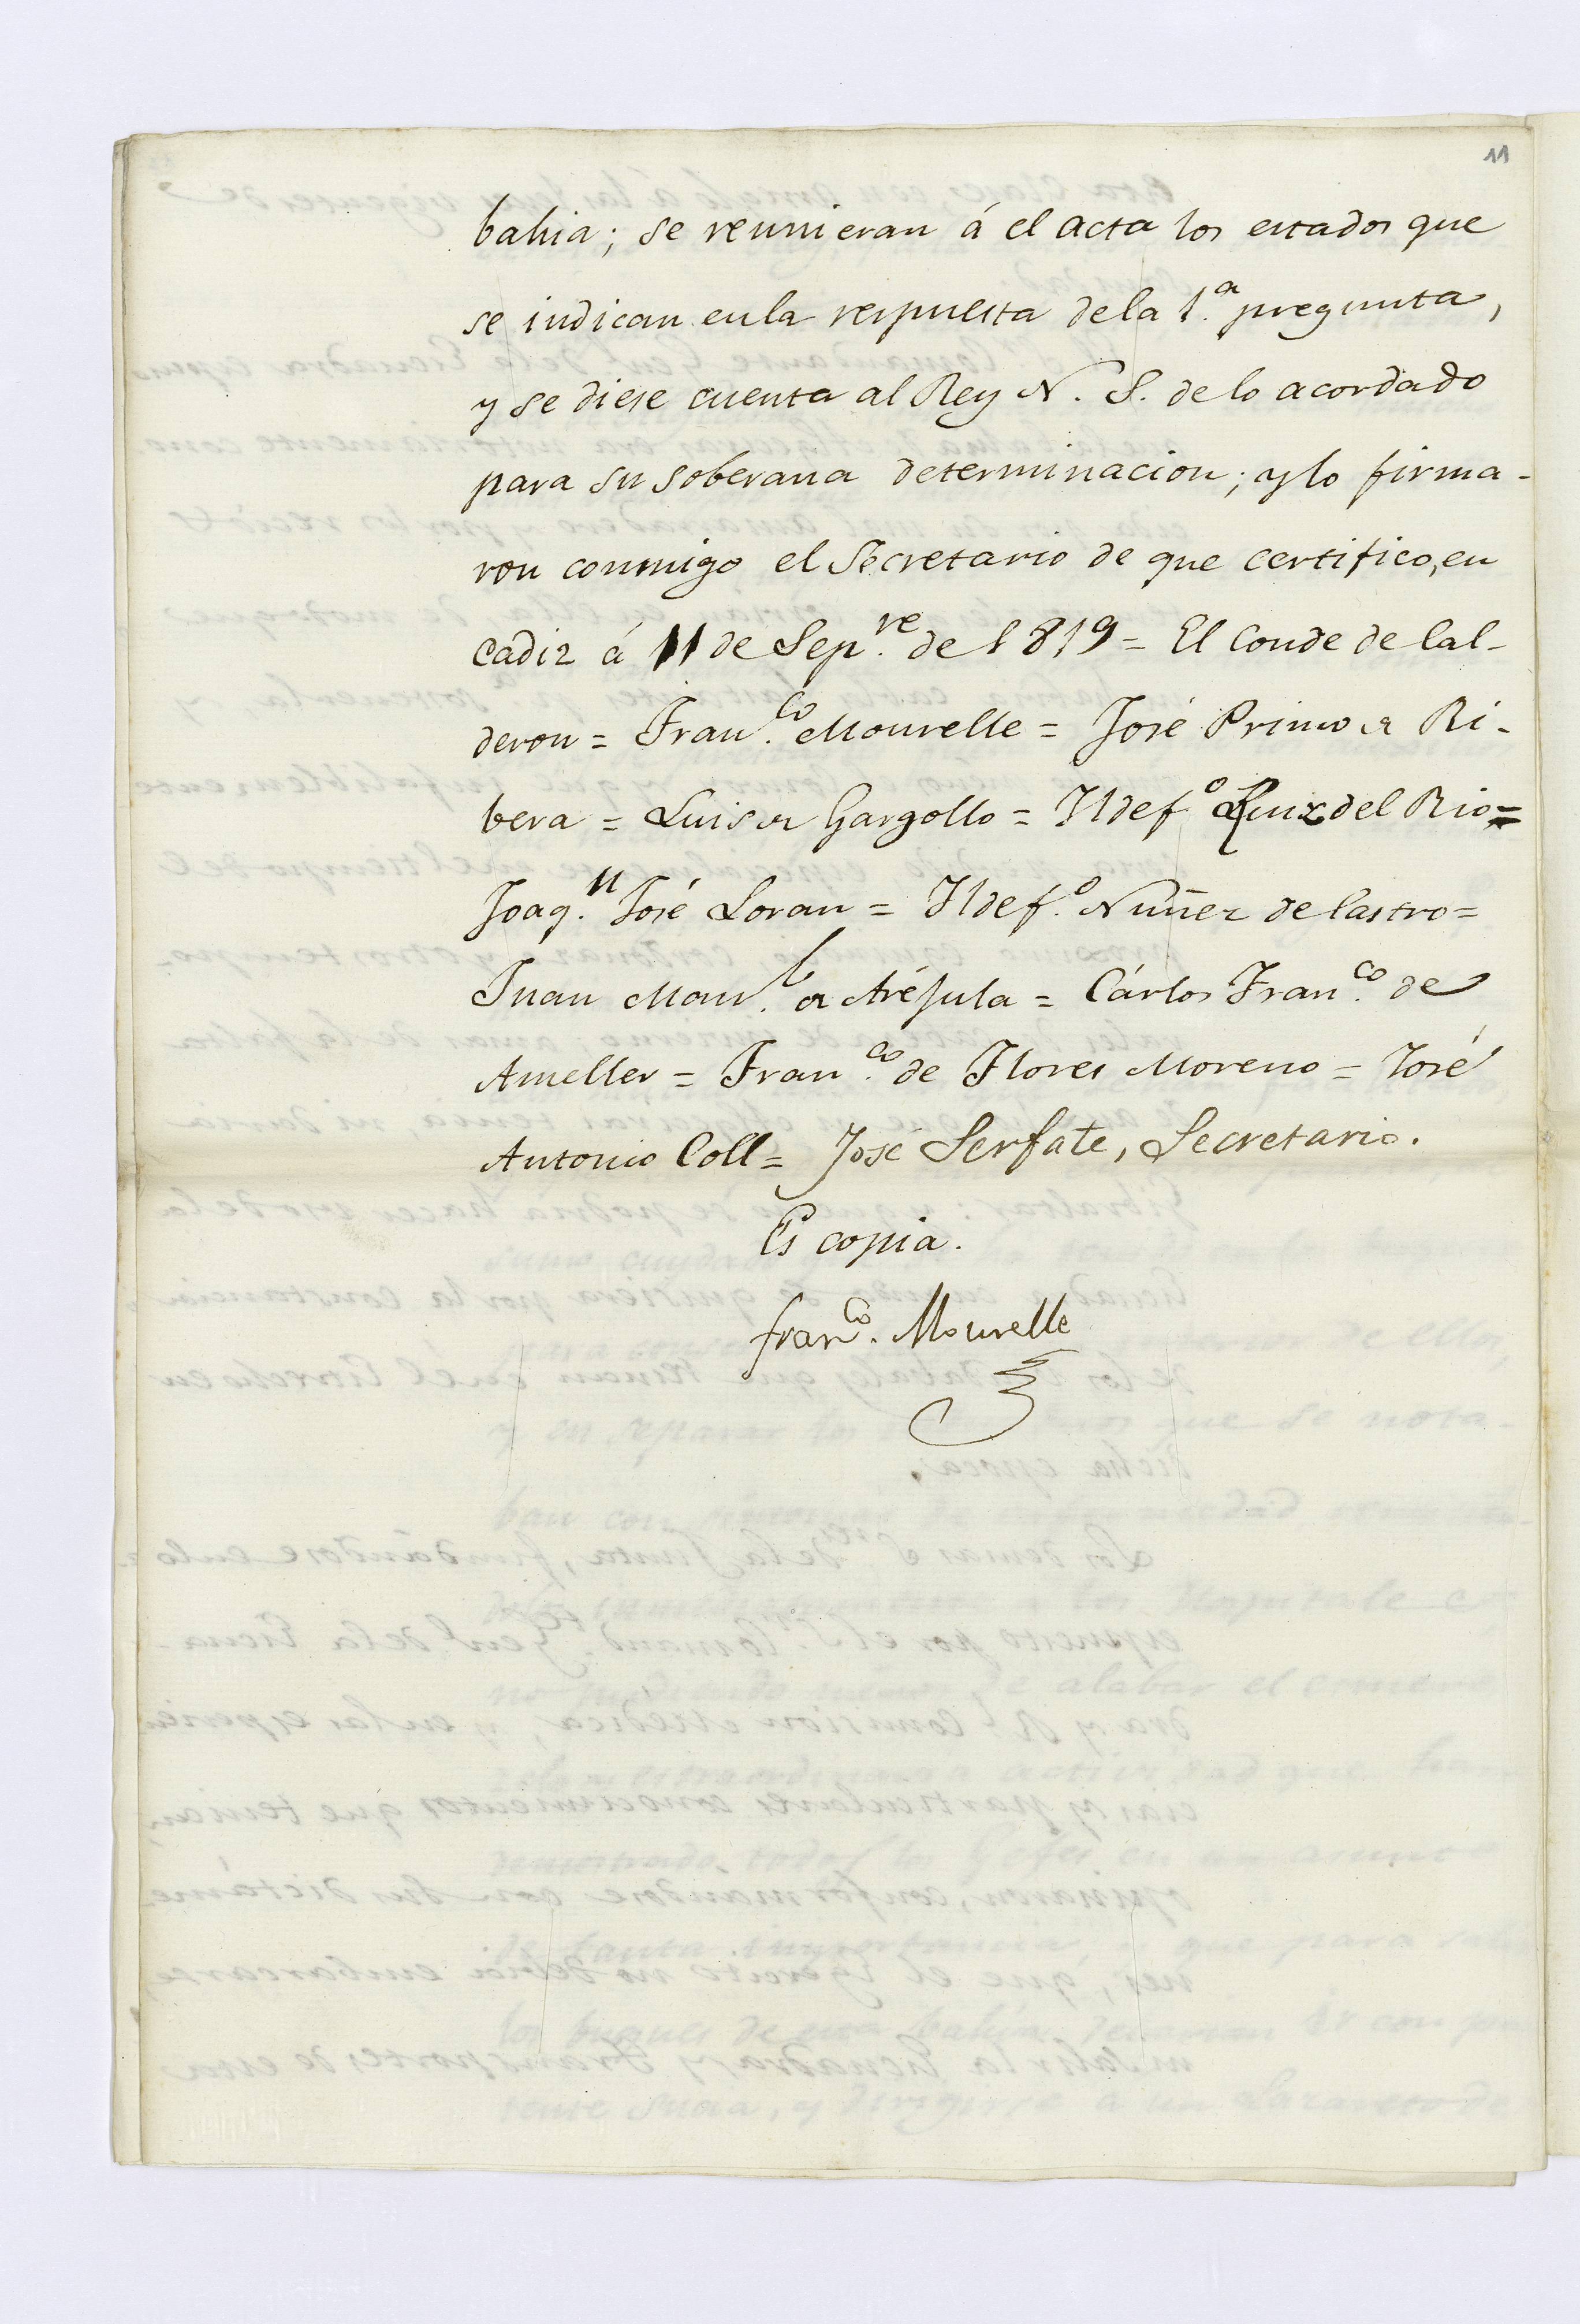 11
bahia; se reunieran á el acta los estados que
se indican en la respuesta de la 1.ª pregunta,
y se diese cuenta al Rey N. S. de lo acordado
para su soberana determinacion; y lo firma-
ron conmigo el Secretario de que certifico, en
Cadiz á 11 de Sep.re de 1819 = El Conde de Cal-
deron = Fran.co Mourelle = José Primo de Ri-
bera = Luis de Gargollo = Ildef.o Ruiz del Rio =
Joaq.n José Loran = Ildef.o Nuñez de Castro =
Juan Man.l de Aréjula = Cárlos Fran.co de
Ameller = Fran.co de Flores Moreno = José
Antonio Coll = José Serfate, Secretario.
Es copia.
Fran.co Mourelle